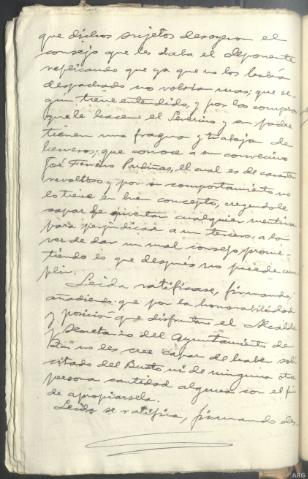 que dichos sujetos desoyeron el
consejo que les daba el deponente
replicando que ya que no los había
despachado no volvían mas; que se-
gún tiene entendido, y por las compras
que le hacen el vecino y su padre
tienen una fragua y trabaja de
herrero; que conoce a su convecino
José Ferrero Pudinas, el cual es de caracter
revoltoso y por su comportamiento no
lo tiene en buen concepto, creyendole
capaz de cualquier mentira
para perjudicar a un tercero, a la
vez de dar un mal consejo, prome-
tiendo lo que después no puede cum-
plir.
Leída, ratificose, firmando,
añadiendo que por la honorabilidad
y posición que disfrutan el Alcalde
y Secretario del Ayuntamiento de
no les cree capaz de haber soli-
citado del Busto ni de ninguna otra
persona cantidad alguna con el fin
de apropiarsela.
Leída se ratifica, firmando
ARG